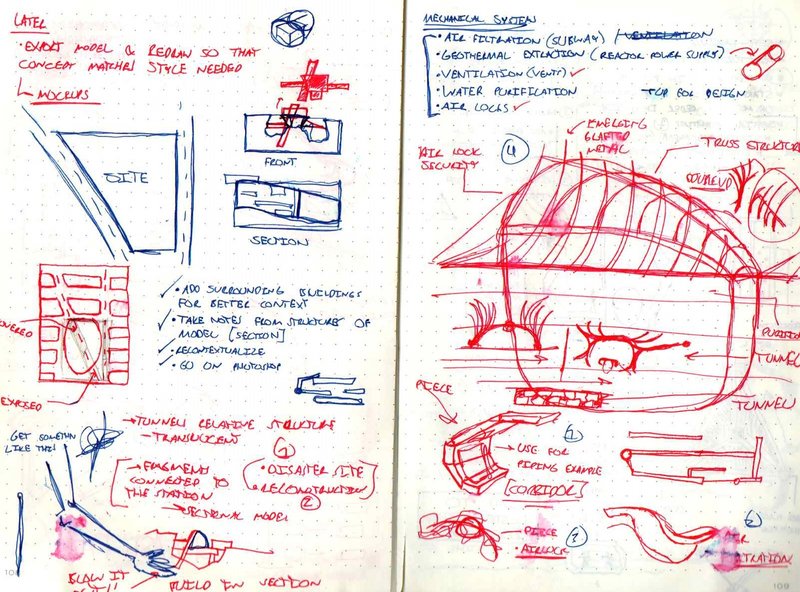 LATER
• EXPORT MODEL & REDRAW SO THAT
CONCEPT MATCHES STYLE NEEDED
MOCKUPS
SITE
FRONT
SECTION
• ADD SURROUNDING BUILDINGS
FOR BETTER CONTEXT
• TAKE NOTES FROM STRUCTURE OF
MODEL [SECTION]
• RECONTEXTUALIZE
• GO ON PHOTOSHOP
EXPOSED
GET SOMETHIN
LIKE THIS
→ TUNNELS RELATIVE STRUCTURE
- TRANSLUCENT
→ FRAGMENT
CONNECTED TO
THE STATION
→ SECTIONAL MODEL
1
• DISASTER SITE
• RECONSTRUCTION
2
BLOW IT
BUILD IN SECTION
MECHANICAL SYSTEM
• AIR FILTRATION (SUBWAY) / VENTILATION
• GEOTHERMAL EXTRACTION (REACTOR POWER SUPPLY)
• VENTILATION (VENT)
• WATER PURIFICATION
• AIR LOCKS
FOR DESIGN
4
EMERGING
METAL
AIR LOCK
SECURITY
TRUSS STRUCTURE
DOUBLE UP
TUNNEL
TUNNEL
PIECE
1
→ USE FOR
PIPING EXAMPLE
[CORRIDOR]
• PIECE
• AIRLOCK
3
2
AIR
FILTRATION
109